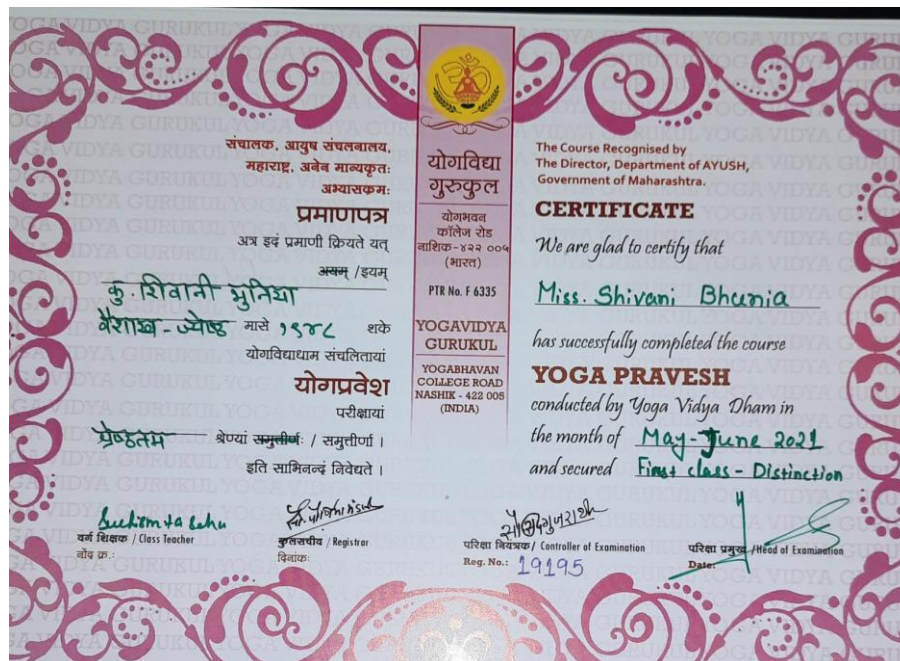 संचालक, आयुष संचलनालय,
महाराष्ट्र, अनेन मान्यकृतः
अभ्यासक्रमः
प्रमाणपत्र
अत्र इदं प्रमाणी क्रियते यत्
अयम् /इयम्
कु. शिवानी भुनिया
वैशाख - ज्येष्ठ मासे १९४८ शके
योगविद्याधाम संचलितायां
योगप्रवेश
परीक्षायां
श्रेष्ठतम श्रेण्यां समुत्तीर्णः / समुत्तीर्णा ।
इति साभिनन्दं निवेद्यते ।
Suchismita Sahu
वर्ग शिक्षक / Class Teacher
नोंद क्र.:
कुलसचीव / Registrar
दिनांकः
योगविद्या
गुरुकुल
योगभवन
कॉलेज रोड
नाशिक-४२२ ००५
(भारत)
PTR No. F 6335
YOGAVIDYA
GURUKUL
YOGABHAVAN
COLLEGE ROAD
NASHIK - 422 005
(INDIA)
The Course Recognised by
The Director, Department of AYUSH,
Government of Maharashtra
CERTIFICATE
We are glad to certify that
Miss. Shivani Bhunia
has successfully completed the course
YOGA PRAVESH
conducted by Yoga Vidya Dham in
the month of May-June 2021
and secured First class - Distinction
परिक्षा नियंत्रक / Controller of Examination
Reg. No.: 19195
परिक्षा प्रमुख /Head of Examination
Date: